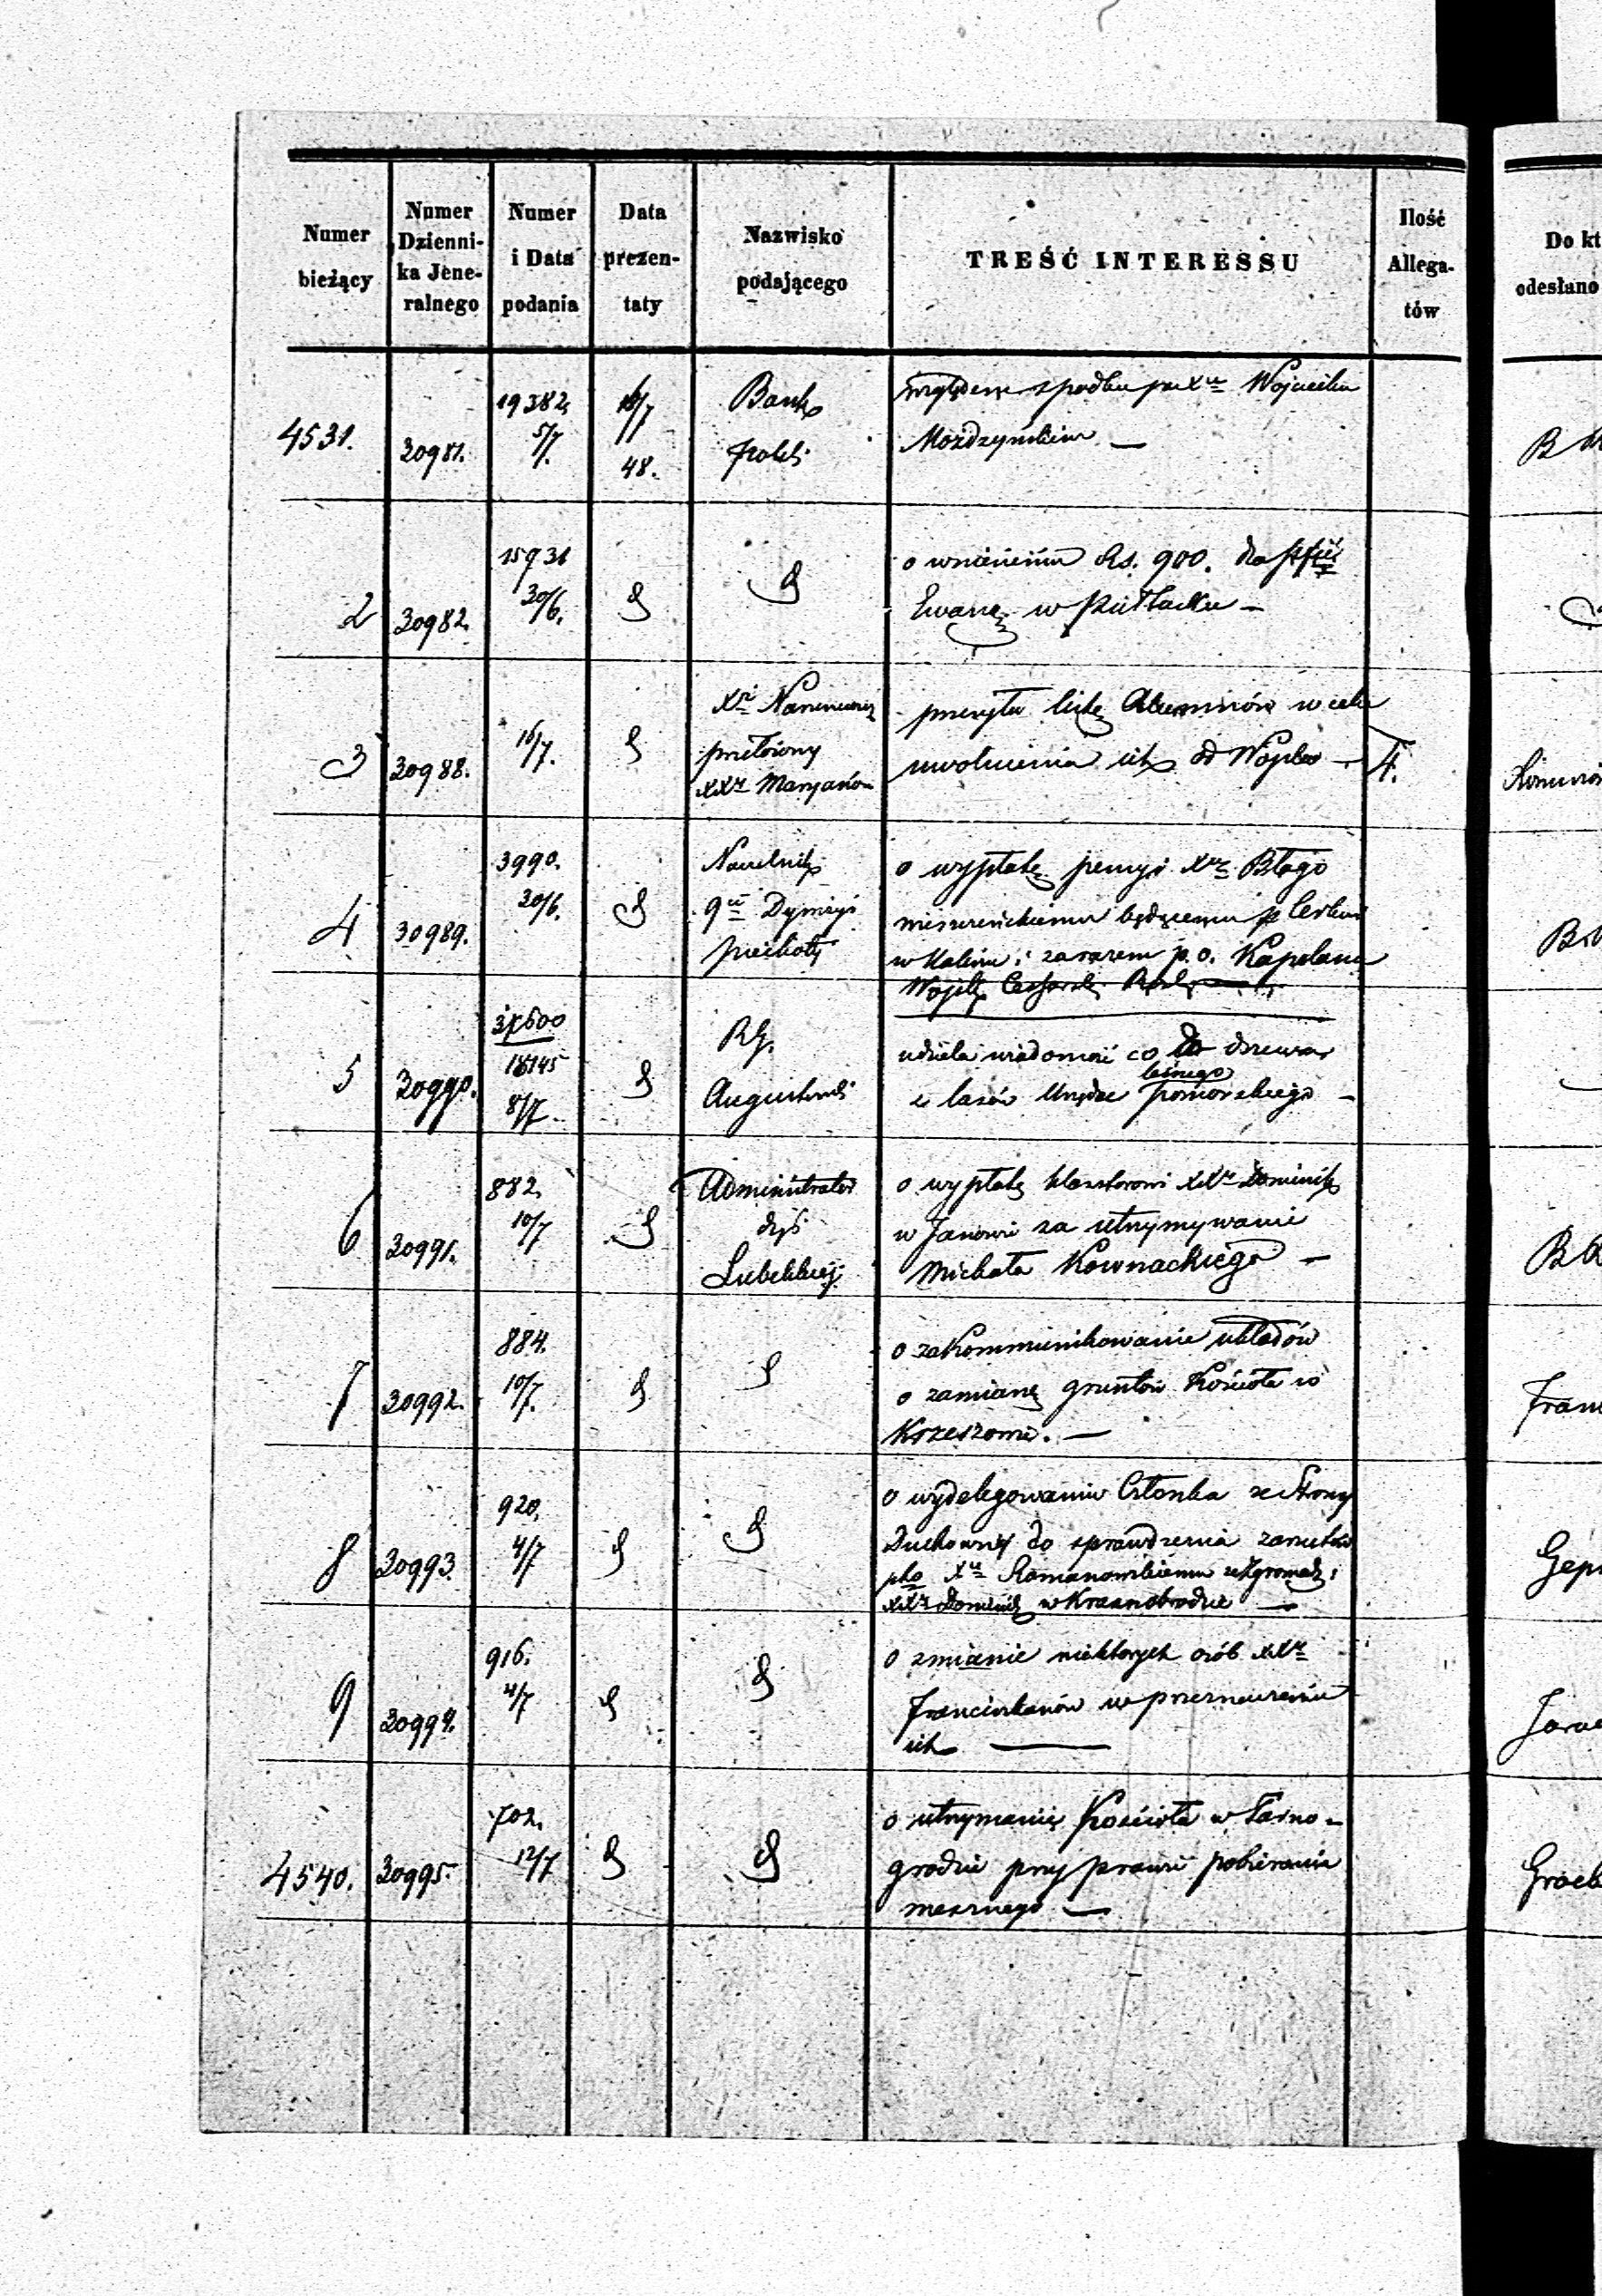 Numer bieżący
Numer Dzienni-ka Jene-ralnego
Numer i Data podania
Data prezen-taty
Nazwisko podającego
TREŚĆ INTERESSU
Ilość Allega-tów
Do kt
odesłano
4531. 30981. 19382. 5/7. 16/7 48. Bank Polski
względem spadku po Xu Wojciechu
Możdzyńskim —
B
2 30982. 15931 30/6. d d
o wniesieniu Rs. 900. dla
Ewang. w Pułtusku —
3 30988. 16/7. d
Xdz przełożony XXy Maryanów
przesyła listę Alumnów w celu
uwolnienia ich od Wojska — 4.
4 30989. 3990. 30/6. d Naczelnik 9éj Dywizyi piechoty
o wypłatę pensyi Xdzu Błago
będącemu p Cerkwi
w Kaliszu i zarazem p. o. Kapelana
Wojsk Cesarsk.
5 30990. 37600 18745 8/7. d RG. Augustowski
udziela wiadomość co do drzewa
z lasów Urzędu leśnego Pomorskiego —
6 30991. 882. 10/7 d Administrator dyec. Lubelskiej
o wypłatę klasztorowi XXy Dominik
w Janowie za utrzymywanie
Michała Kownackiego —
B
7 30992. 884. 10/7. d d
o zakommunikowanie układów
o zamianę gruntów Kościoła w
Krzeszowie. —
8 30993. 920. 4/7 d d
o wydelegowanie Członka ze Strony
Duchownej do sprawdzenia zarzutów
pko Xu Romanowskiemu ze Zgromadz:
XXy Dominik w Krasnobrodzie —
9 30994. 916. 4/7 d d
o zmianie niektorych osób XXy
Franciszkanów w przeznaczeniu
ich —
4540. 30995. 702. 12/7 d d
o utrzymanie Kościoła w Tarno-
grodzie przy prawie pobierania
mesznego —